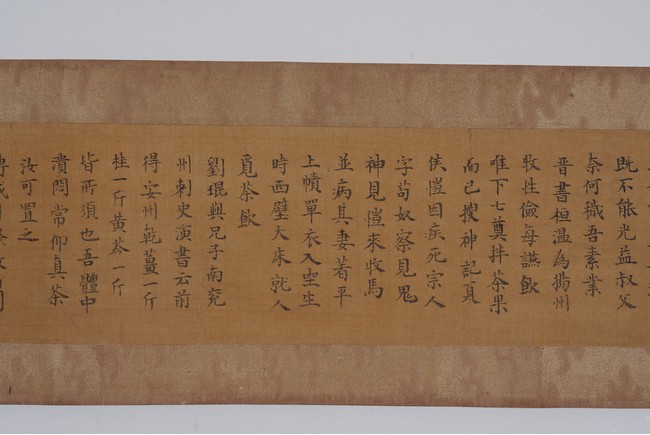 既不能光益叔父
奈何穢吾素業
晉書桓温為揚州
牧性儉每讌飲
唯下七奠拌茶果
而已搜神記夏
侯愷因疾死宗人
字苟奴察見鬼
神見愷來收馬
並病其妻著平
上幘單衣入坐生
時西壁大床就人
覓茶飲
劉琨與兄子南兖
州刺史演書云前
得安州乾薑一斤
桂一斤黄芩一斤
皆所須也吾體中
潰悶常仰真茶
汝可置之